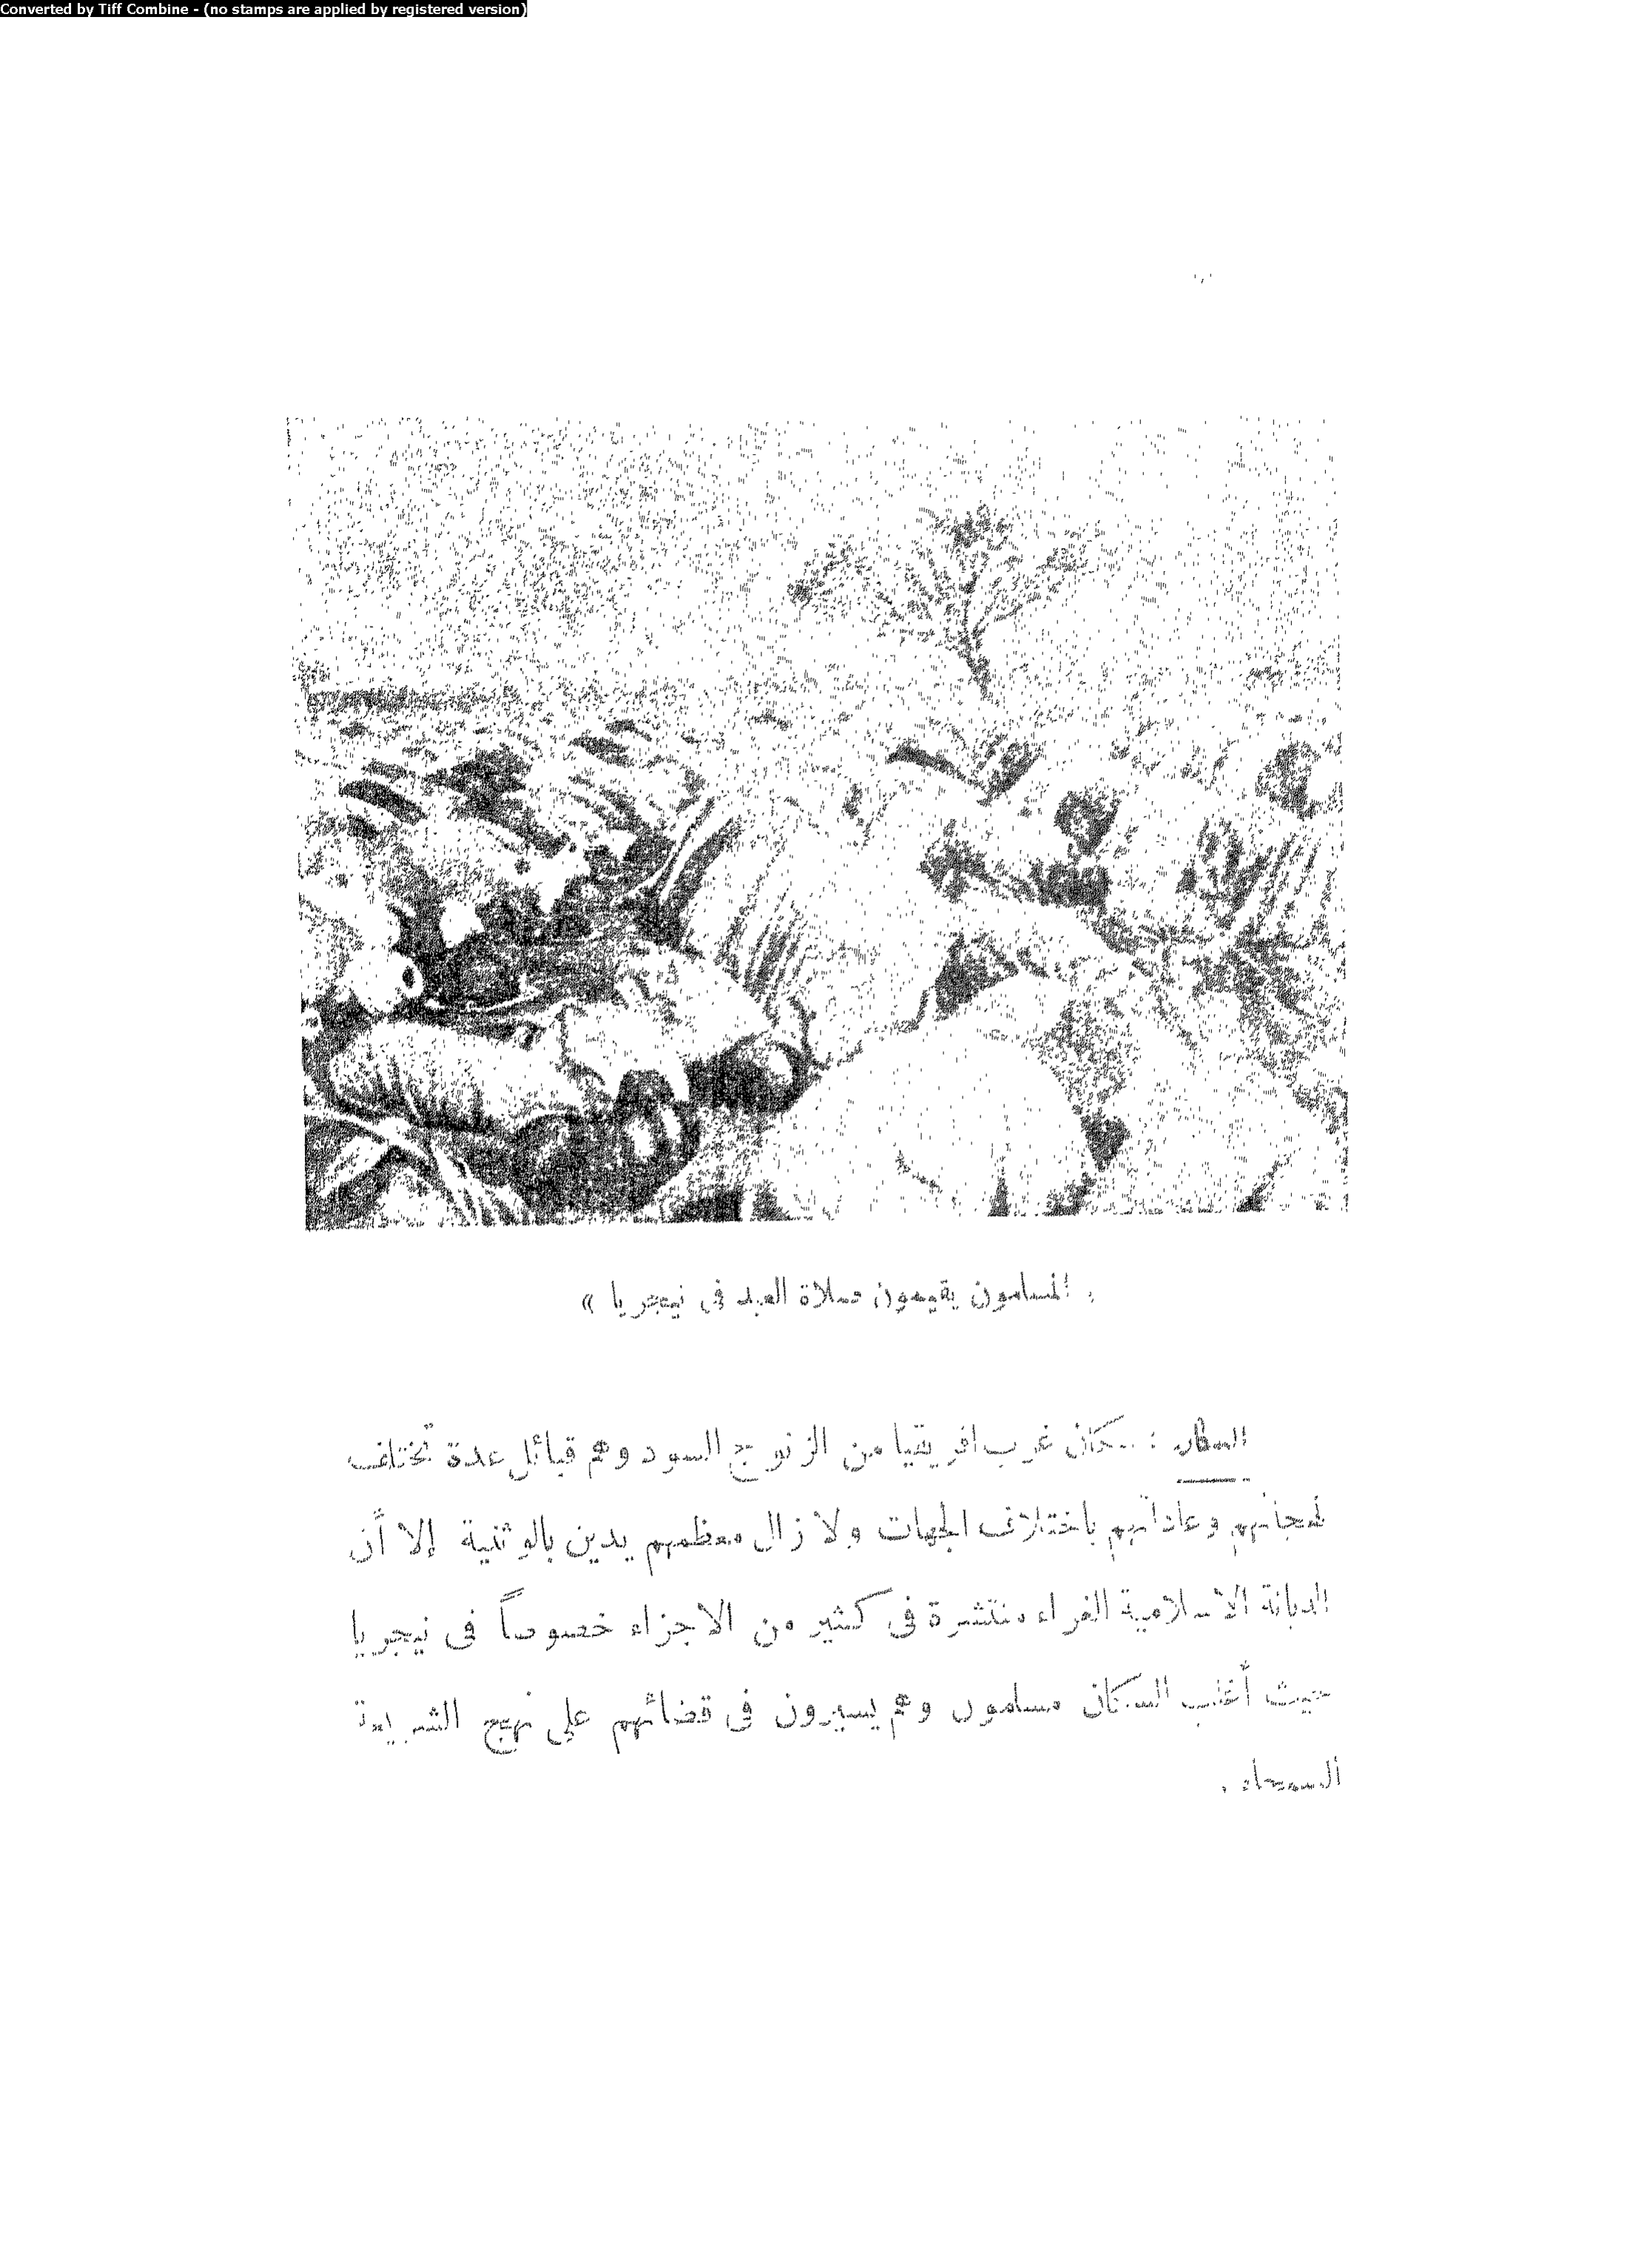 Converted by Tiff Combine - (no stamps are applied by registered version)
« المسلمون يقيمون صلاة العيد فى نيجريا »
السكان : سكان غرب افريقيا من الزنوج السود وهم قبائل عدة تختلف
لهجاتهم وعاداتهم باختلاف الجهات ولا زال معظمهم يدين بالوثنية إلا أن
الديانة الاسلامية الغراء منتشرة فى كثير من الاجزاء خصوصاً فى نيجريا
حيث أغلب السكان مسلمون وهم يسيرون فى قضائهم على نهج الشريعة
السمحاء .